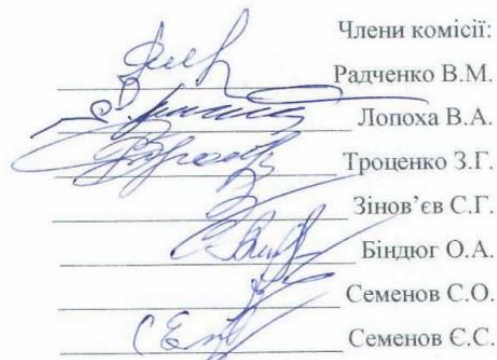 Члени комісії:
Радченко В.М.
Лопоха В.А.
Троценко З.Г.
Зінов’єв С.Г.
Біндюг О.А.
Семенов С.О.
Семенов Є.С.